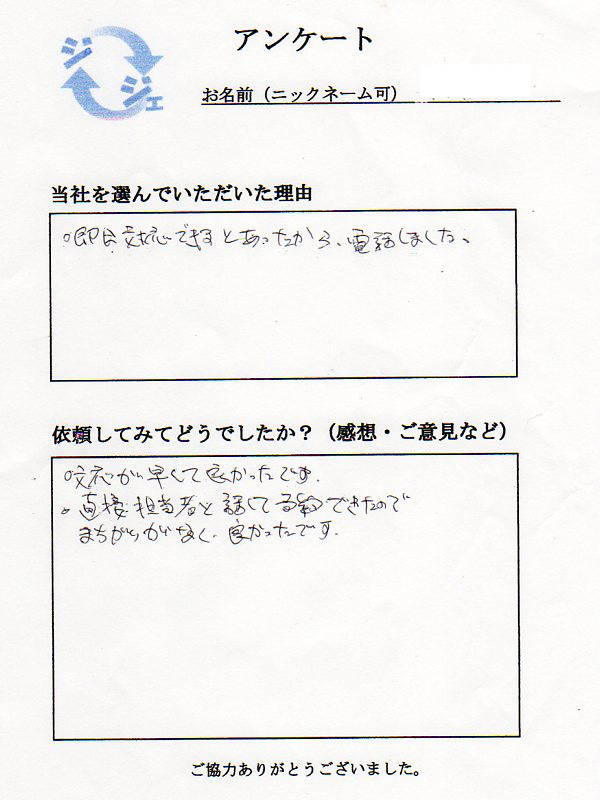 ジジェ
アンケート
お名前（ニックネーム可）
当社を選んでいただいた理由
○即日対応できるとあったから、電話しました。
依頼してみてどうでしたか？（感想・ご意見など）
○対応が早くて良かったです.
○直接担当者と話して予約できたので
まちがいがなく、良かったです.
ご協力ありがとうございました。